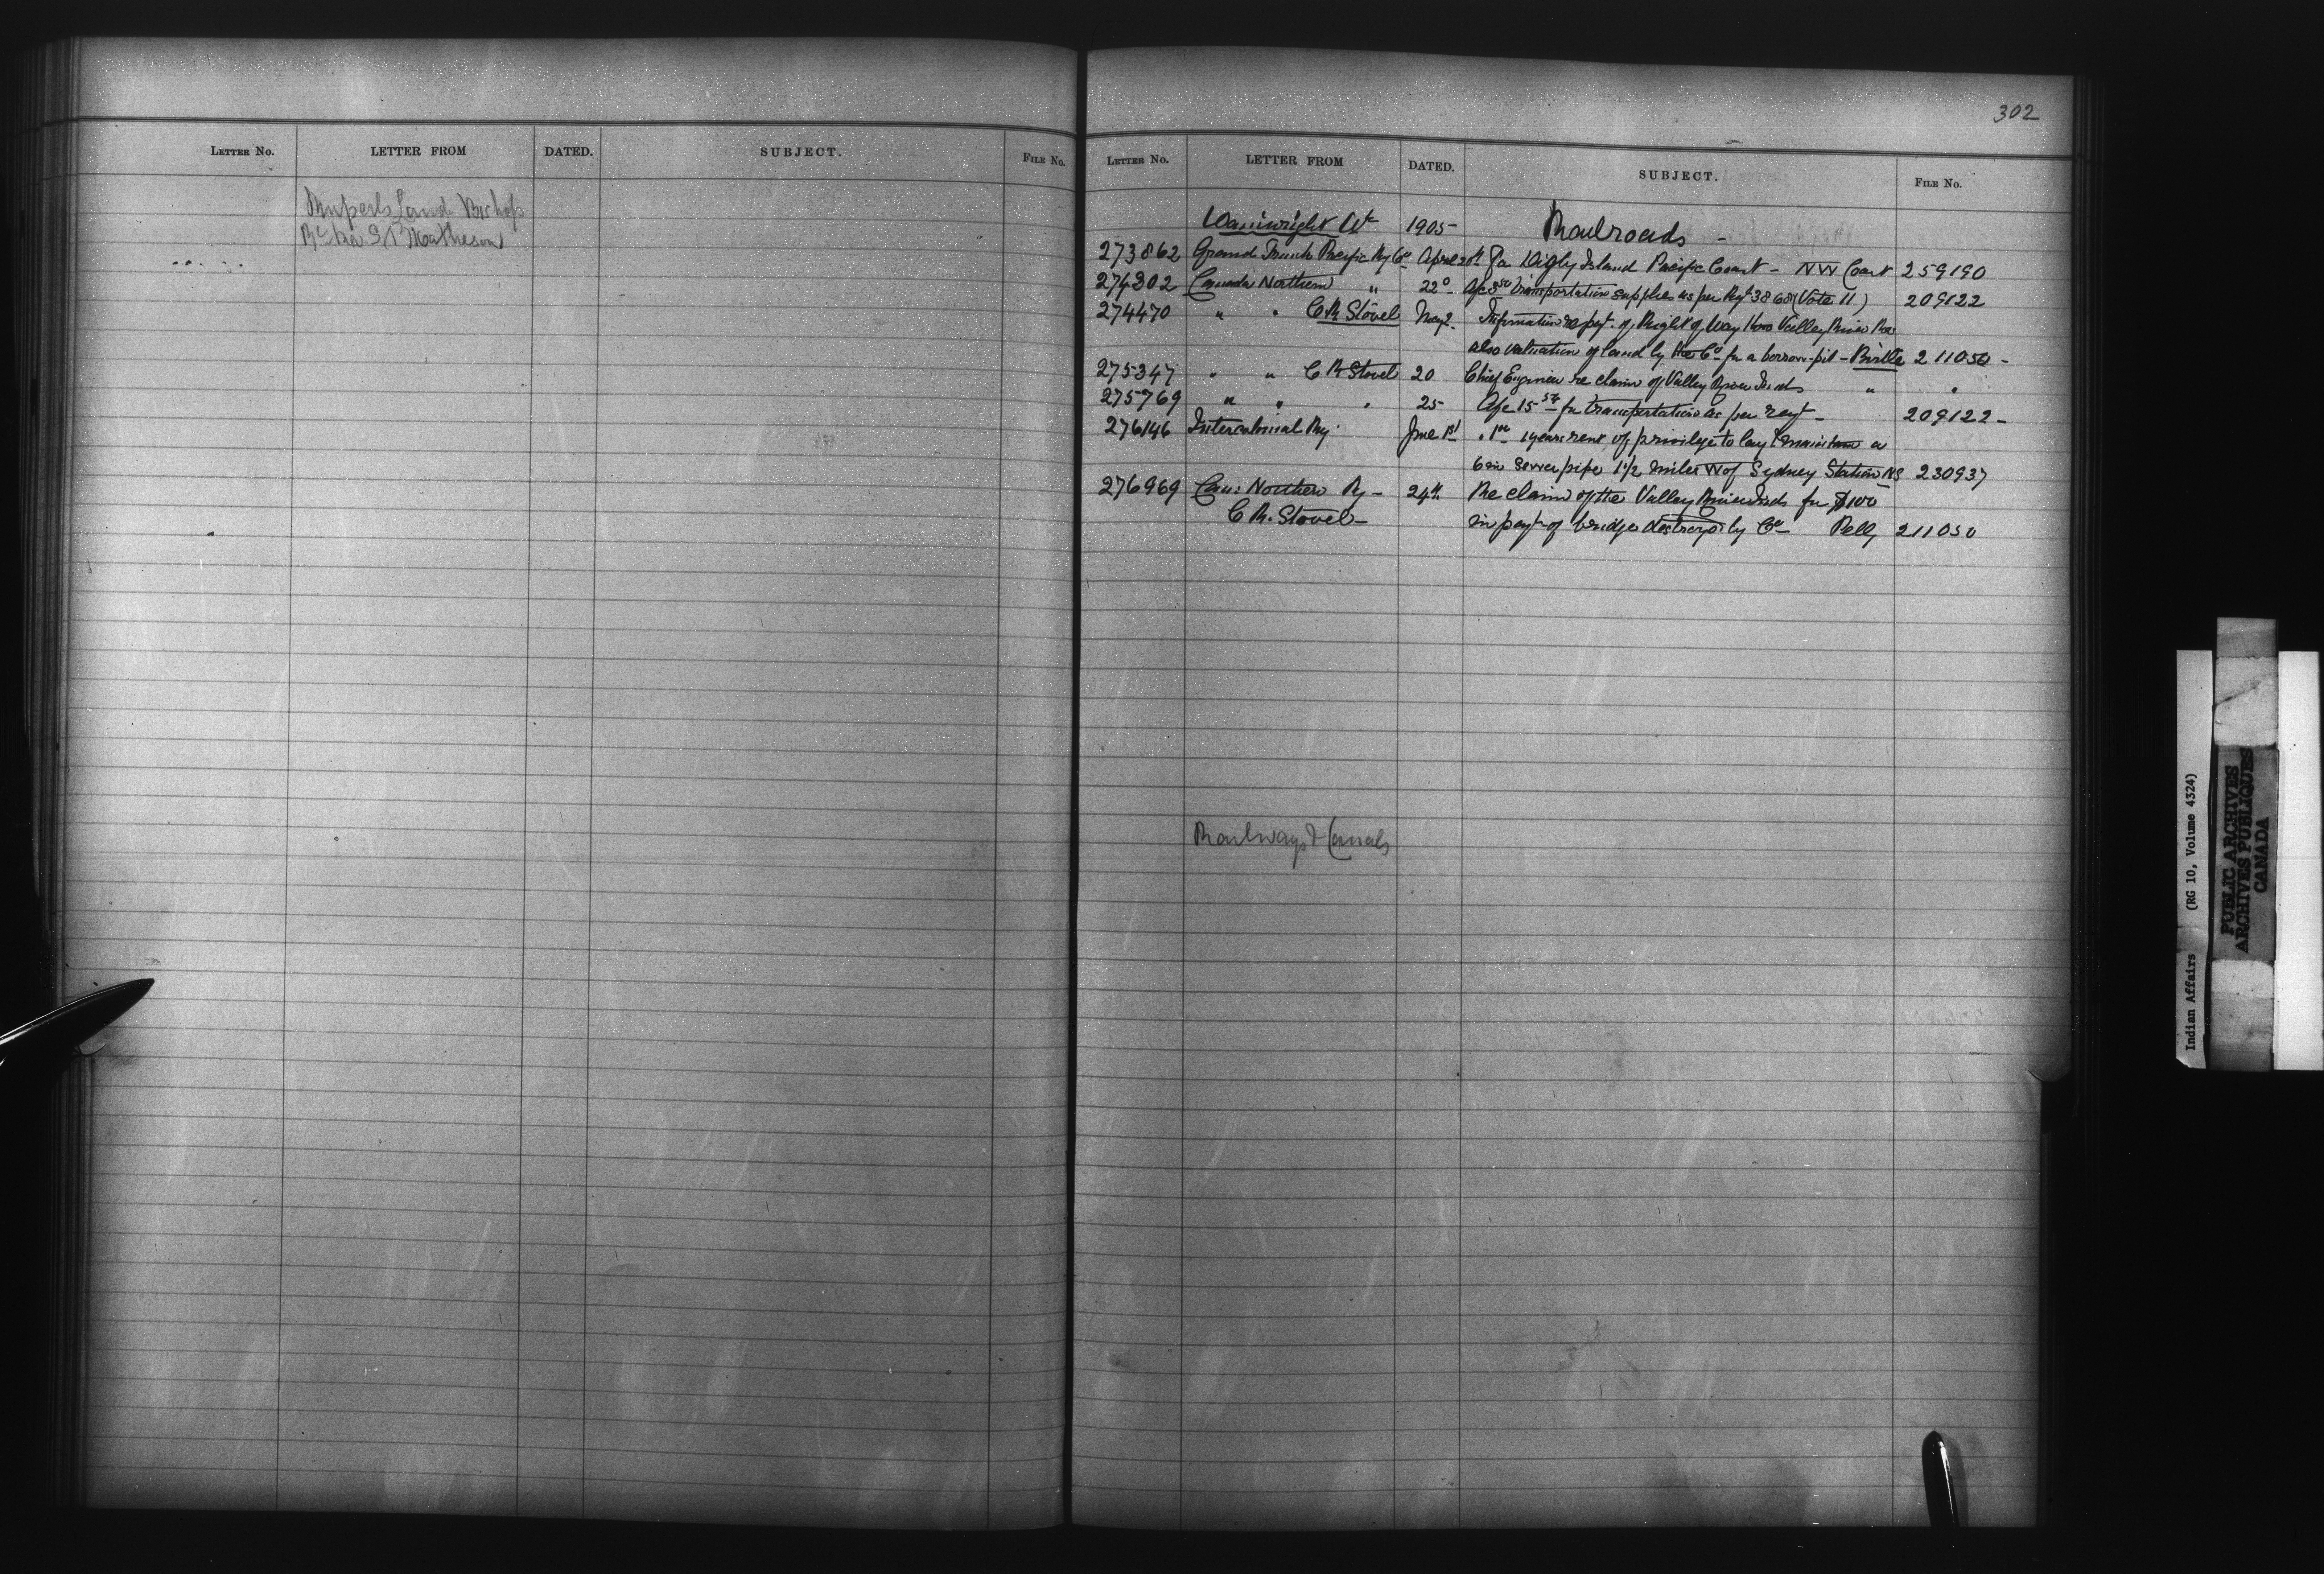 LETTER No. LETTER FROM DATED. SUBJECT. FILE No.
Ruperts Land Bishop
Rt Rev S P Matheson
302
LETTER No. LETTER FROM DATED. SUBJECT. FILE No.
Wainwright Wm 1905 Railroads -
273862 Grand Trunk Pacific Ry Co April 20th Re Digby Island Pacific Coast - NW Coast 259190
274302 Canada Northern " 22d transportation supplies as per Reqt 3868 (Vote 11) 209122
274470 " " C R Stovel May 2 Information re payt. of Right of Way thro Valley River Res
also valuation of land by the Co for a borrow-pit - Birtle 211050 -
275347 " " C R Stovel 20 Chief Engineer re claim of Valley River Inds " "
275769 " " " 25 a/c 15 50 for transportation as per reqt - 209122 -
276146 Intercolonial Ry June 1st years rent of privilege to lay & maintain a
6 in sewer pipe 1 1/2 miles W of Sydney Station NS 230937
276969 Can: Northern Ry - 24th Re claim of the Valley River Inds for $100
C R. Stovel - in payt of bridge destroyed by Co - Pelly 211050
Railways & Canals
Indian Affairs (RG 10, Volume 4324)
PUBLIC ARCHIVES
ARCHIVES PUBLIQUES
CANADA